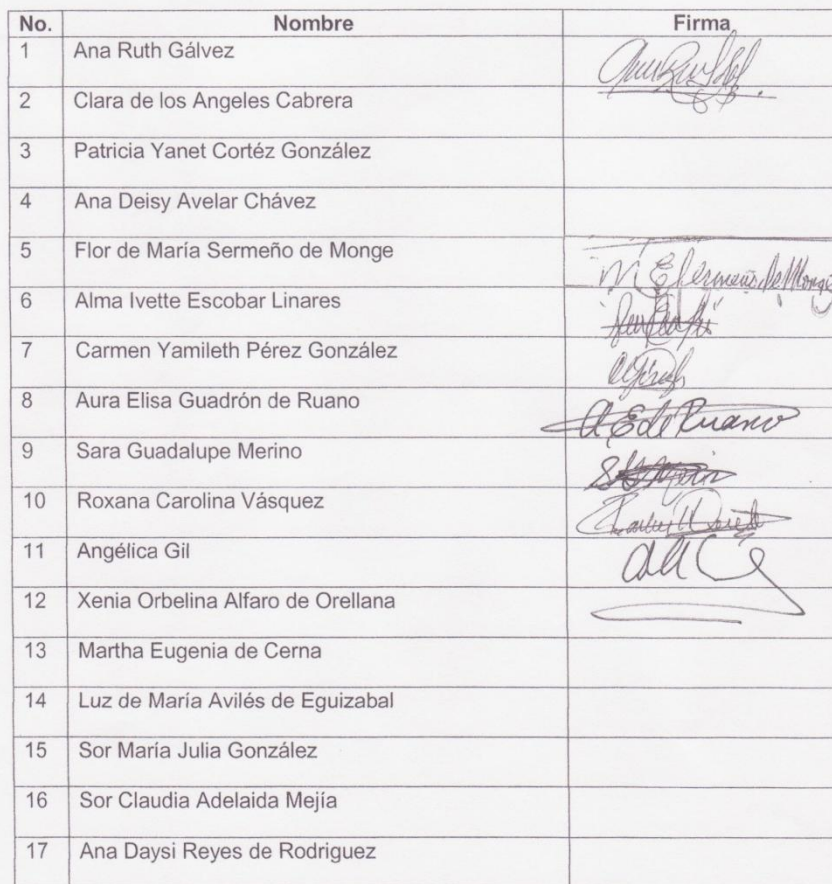 No. Nombre Firma
1 Ana Ruth Gálvez
2 Clara de los Angeles Cabrera
3 Patricia Yanet Cortéz González
4 Ana Deisy Avelar Chávez
5 Flor de María Sermeño de Monge
6 Alma Ivette Escobar Linares
7 Carmen Yamileth Pérez González
8 Aura Elisa Guadrón de Ruano A E de Ruano
9 Sara Guadalupe Merino
10 Roxana Carolina Vásquez
11 Angélica Gil
12 Xenia Orbelina Alfaro de Orellana
13 Martha Eugenia de Cerna
14 Luz de María Avilés de Eguizabal
15 Sor María Julia González
16 Sor Claudia Adelaida Mejía
17 Ana Daysi Reyes de Rodriguez